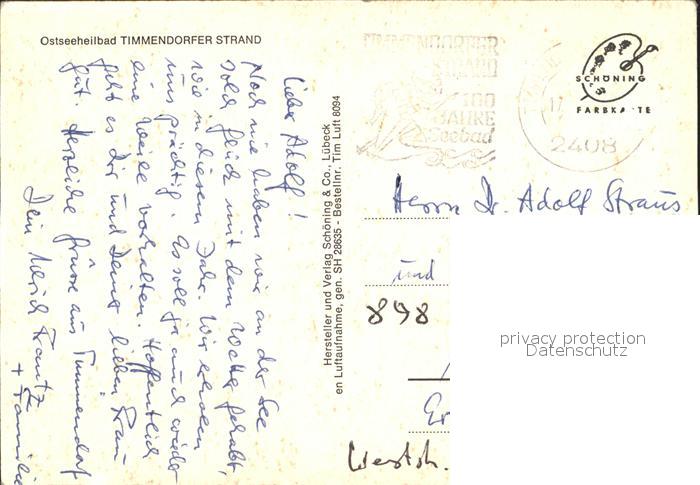 Ostseeheilbad TIMMENDORFER STRAND
Lieber Adolf!
Noch nie haben wir an der See
solch Glück mit dem Wetter gehabt,
wie in diesem Jahr. Wir erholen
uns prächtig. Es soll ja auch wieder
eine Weile vorhalten. Hoffentlich
geht es Dir und Deiner lieben Frau
gut. Herzliche Grüsse aus Timmendorf
Dein Ulrich Frantz
+ Familie
Hersteller und Verlag Schöning & Co., Lübeck
en Luftaufnahme, gen. SH 28635 - Bestellnr. Tim Luft 8094
TIMMENDORFER
STRAND
100
JAHRE
Seebad
17
2408
SCHÖNING
FARBKARTE
Herrn Dr. Adolf Straus
und
898
Er
Westsh.
privacy protection
Datenschutz